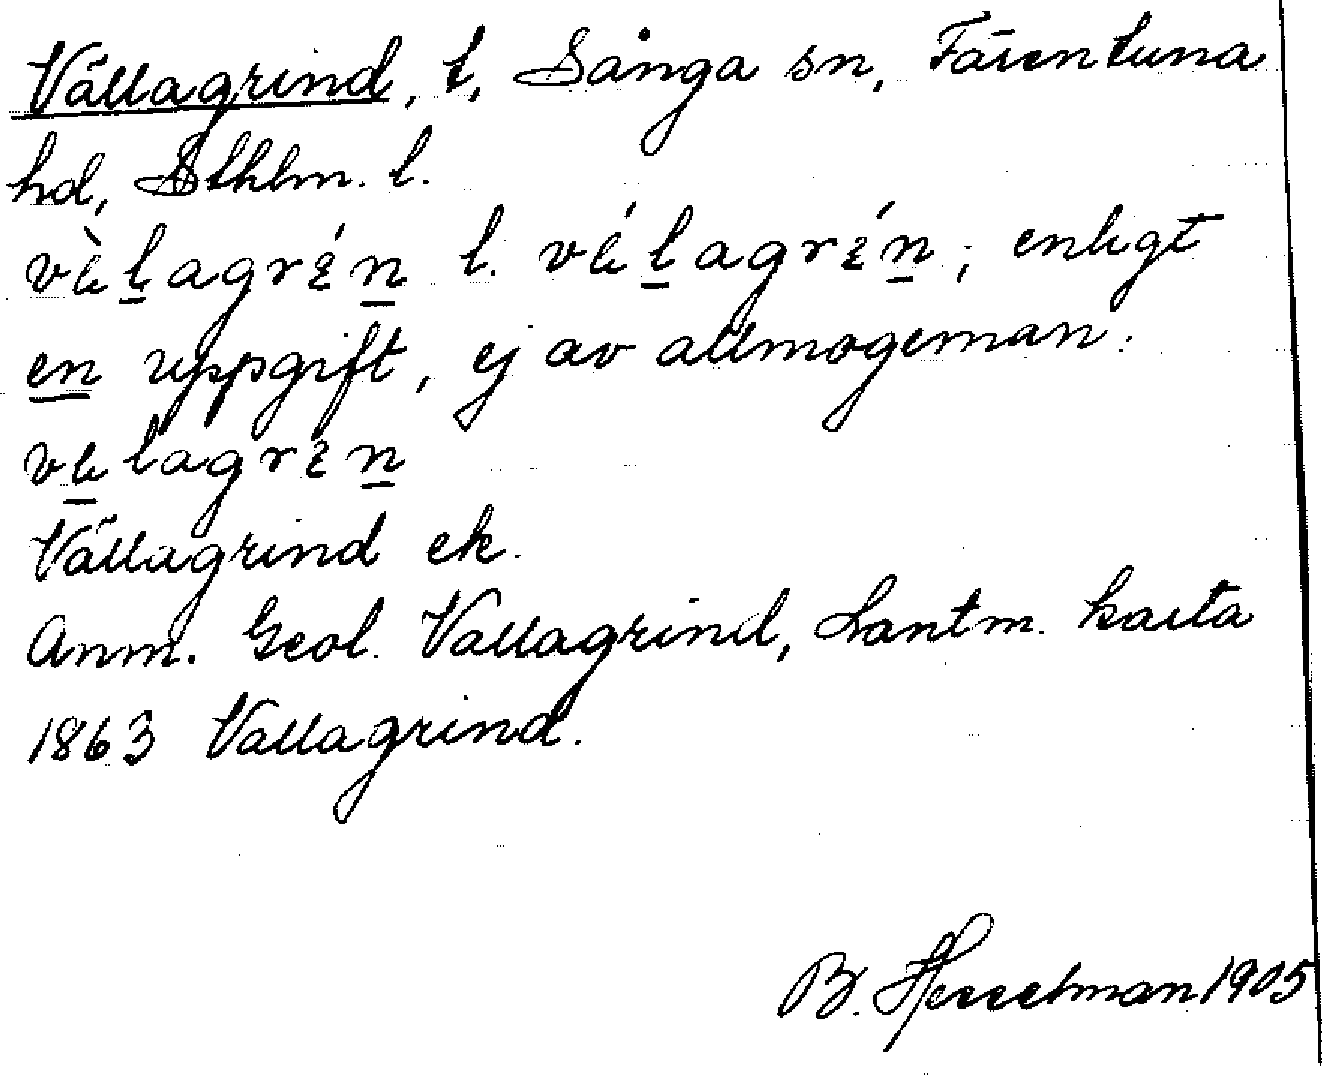 Vällagrind, t, Sånga sn, Färentuna
hd, Sthlm. l.
væ̀l̲agrɛ́n̲ l. vǽl̲agrɛ́n̲; enligt
en uppgift, ej av allmogeman:
væ̲lagrɛn̲
Vällagrind ek.
Anm. Geol. Vallagrind, Lantm. karta
1863 Vallagrind.
B. Hesselman 1905